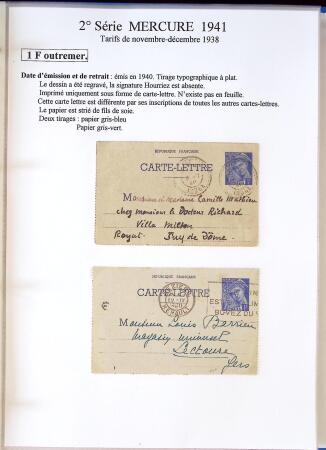 2° Série MERCURE 1941
Tarifs de novembre-décembre 1938
1 F outremer.
Date d'émission et de retrait : émis en 1940. Tirage typographique à plat.
Le dessin a été regravé, la signature Hourriez est absente.
Imprimé uniquement sous forme de carte-lettre. N'existe pas en feuille.
Cette carte lettre est différente par ses inscriptions de toutes les autres cartes-lettres.
Le papier est strié de fils de soie.
Deux tirages : papier gris-bleu
Papier gris-vert.
RÉPUBLIQUE FRANÇAISE
CARTE-LETTRE
Monsieur et Madame Camille Mathieu
chez monsieur le Docteur Richard
Villa Milton
Royat Puy de Dôme
RÉPUBLIQUE FRANÇAISE
CARTE-LETTRE
BUVEZ DU
Monsieur Louis Berrieu
Magasin
Lectoure
Gers